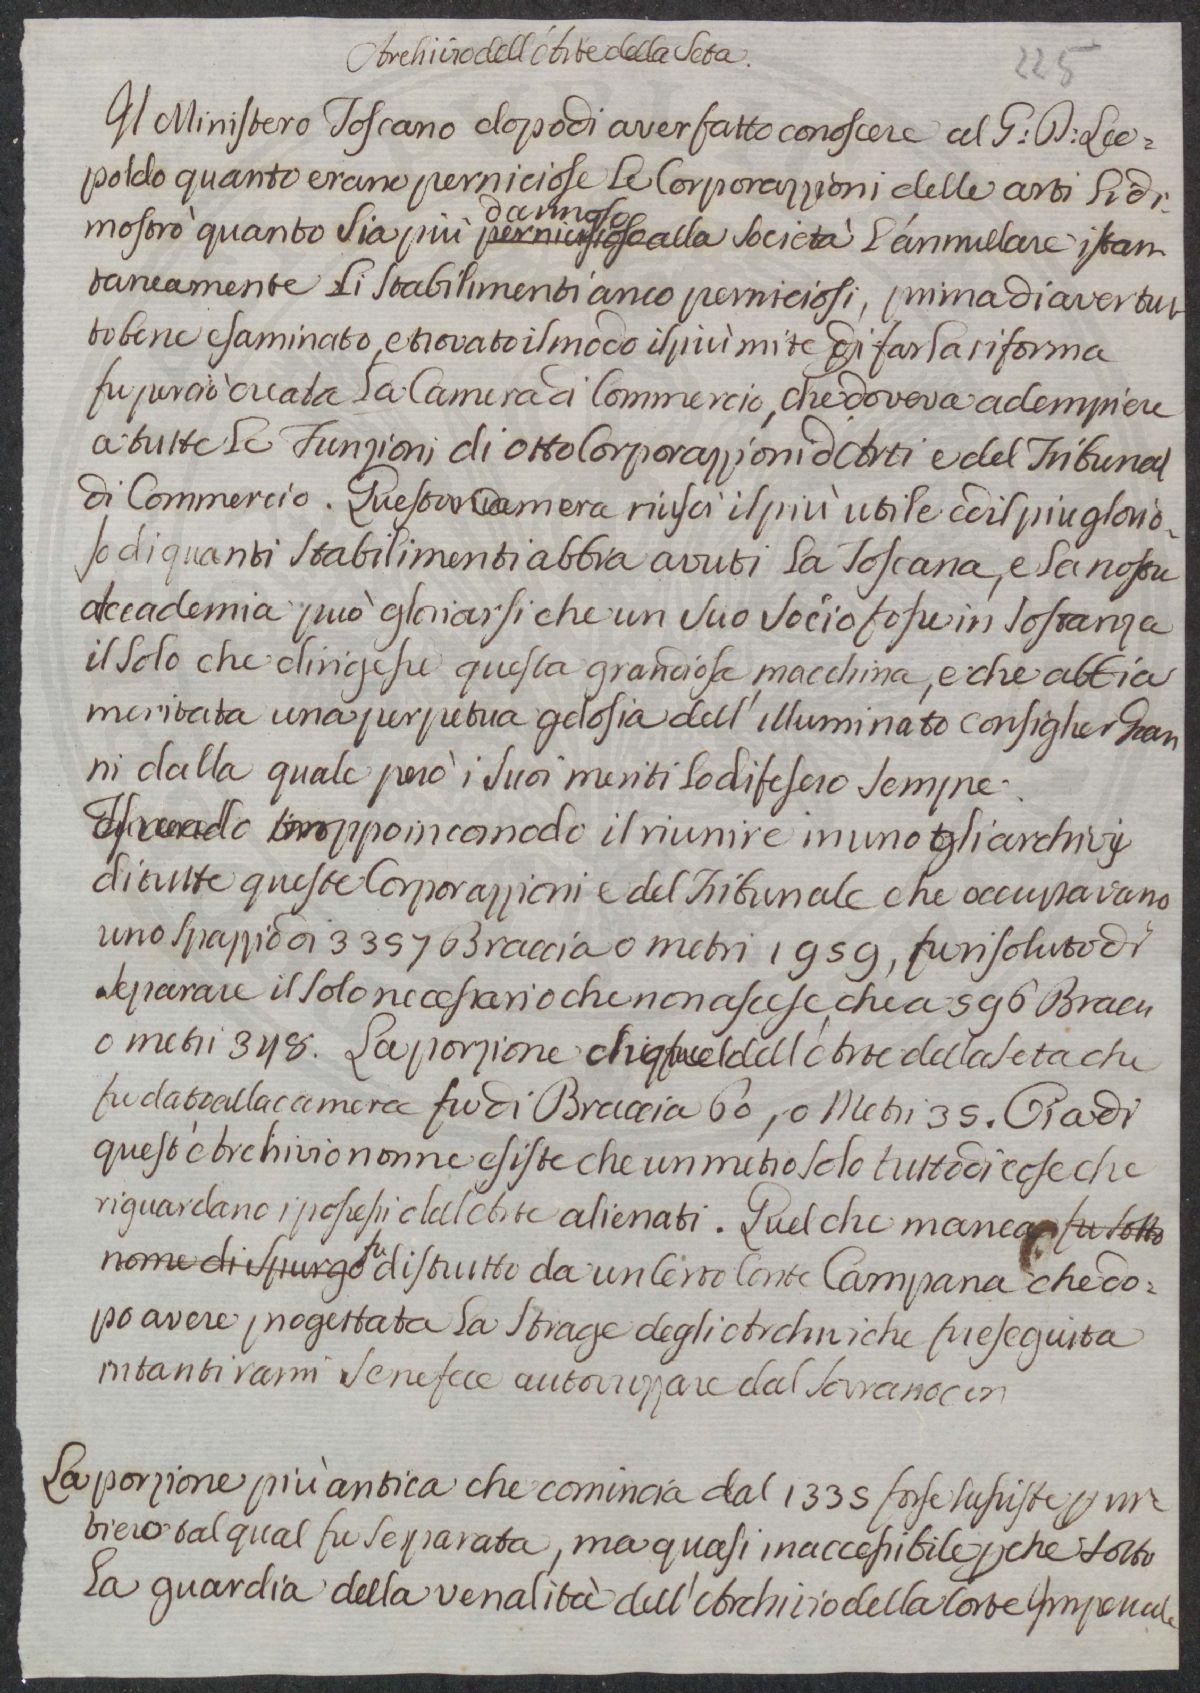 Archivio dell'Arte della Seta.
225
Il Ministero Toscano dopo di aver fatto conoscere al G: D: Leo=
poldo quanto erano perniciose le Corporazzioni delle arti li di-
mostrò quanto sia più perniciose dannoso alla società l'annullare istan
taneamente li stabilimenti anco perniciosi, prima di aver tut
to bene esaminato, e trovato il modo il più mite di far la riforma
fu perciò creata la Camera di Commercio, che doveva adempiere
a tutte le Funzioni di otto Corporazzioni d'Arti e del Tribunal
di Commercio. Questa Camera riuscì il più utile ed il piu glorio-
so di quanti stabilimenti abbia avuti la Toscana, e la nostra
Accademia può gloriarsi che un suo socio fosse in sostanza
il solo che dirigesse questa grandiosa macchina, e che abbia
meritata una perpetua gelosia dell'illuminato consiglier Gian
ni dalla quale però i suoi meriti lo difesero sempre.
Essendo troppo incomodo il riunire in uno gli archivj
di tutte queste Corporazzioni e del Tribunale che occupavano
uno spazzio di 3357 Braccia o metri 1959, fu risoluto di
separare il solo necessario che non ascese, che a 596 Braccia
o metri 348. La porzione dell'Arte della Seta che
fu dato alla camera fu di Braccia 60, o Metri 35. Ora di
quest'Archivio non ne esiste che un metro solo tutto di cose che
riguardano i possessi dell'Arte alienati. Quel che manca fu sotto
nome di spurgo fu distrutto da un certo Conte Campana che do=
po avere progettata la strage degli Archivi che fu eseguita
in tanti rami se ne fece autorizzare dal Sovrano con
La porzione più antica che comincia dal 1335 forse sussiste p in=
tiero tal qual fu separata, ma quasi inaccessibile pche sotto
la guardia della venalità dell'Archivio della Corte Imperiale